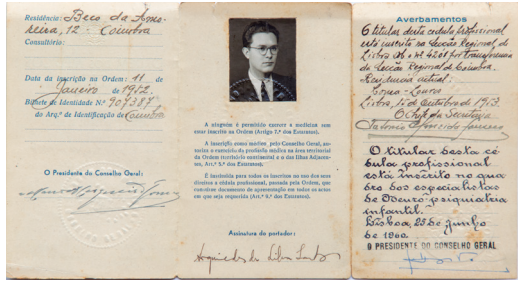 Residência: Beco da Amo-
reira, 12 - Coimbra
Consultório:
Data da inscrição na Ordem: 11 de
Janeiro de 1942
Bilhete de Identidade N.º 907387
do Arq.º de Identificação de Coimbra
O Presidente do Conselho Geral:
A ninguém é permitido exercer a medicina sem
estar inscrito na Ordem (Artigo 7.º dos Estatutos).
A inscrição como médico, pelo Conselho Geral, au-
toriza o exercício da profissão médica na área territorial
da Ordem (território continental e o das Ilhas Adjacen-
tes, Art.º 3.º dos Estatutos).
É facultada para todos os inscritos no uso dos seus
direitos a cédula profissional, passada pela Ordem, que
constitue documento de apresentação em todos os actos
em que seja requerida (Art.º 9.º dos Estatutos).
Assinatura do portador:
Arquimedes da Silva Santos
Averbamentos
O titular desta cedula profissional
está inscrito na Secção Regional de
Lisboa sob o nº 4201 por transferencia
da Secção Regional de Coimbra.
Residencia actual:
Lisboa, 15 de Outubro de 1953.
O Chefe da Secretaria
O titular desta cé-
dula profissional
está inscrito no qua-
dro dos especialistas
de Neuro-psiquiatria
infantil.
Lisboa, 23 de Junho
de 1960.
O PRESIDENTE DO CONSELHO GERAL